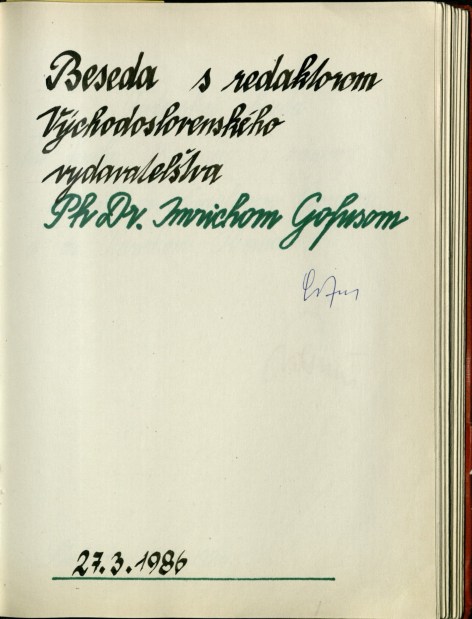 Beseda s redaktorom
Východoslovenského
vydavatelštva
Ph Dr. Imrichom Gofusom
27.3.1986